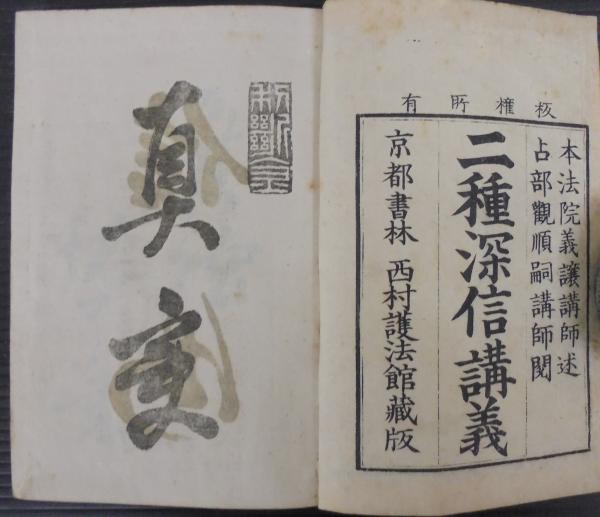 板權所有
本法院義讓講師述
占部觀順嗣講師閱
二種深信講義
京都書林 西村護法館藏版
真実